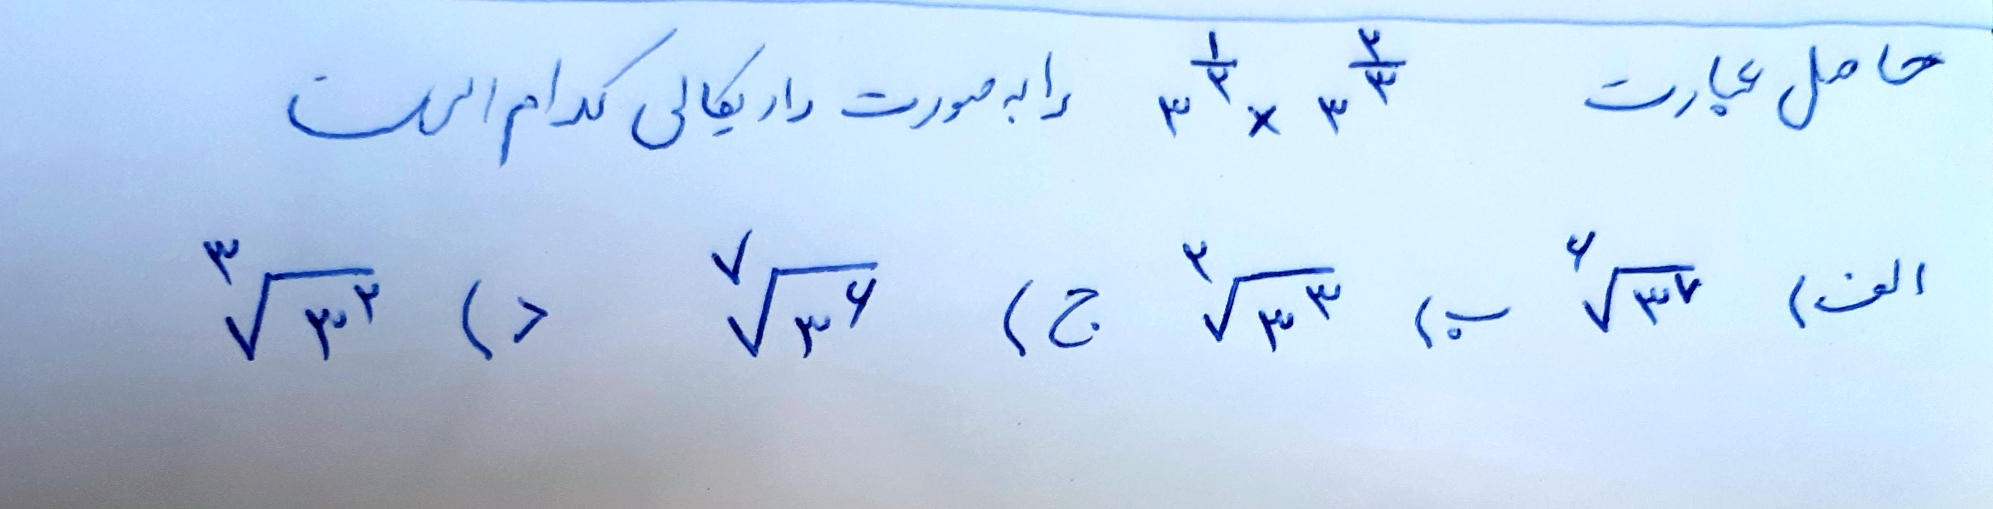 حاصل عبارت ۳^{۲/۳} × ۳^{۱/۲} را به صورت رادیکالی کدام است
الف) \sqrt[۶]{۳^۷} ب) \sqrt[۲]{۳^۳} ج) \sqrt[۷]{۳^۶} د) \sqrt[۳]{۳^۲}